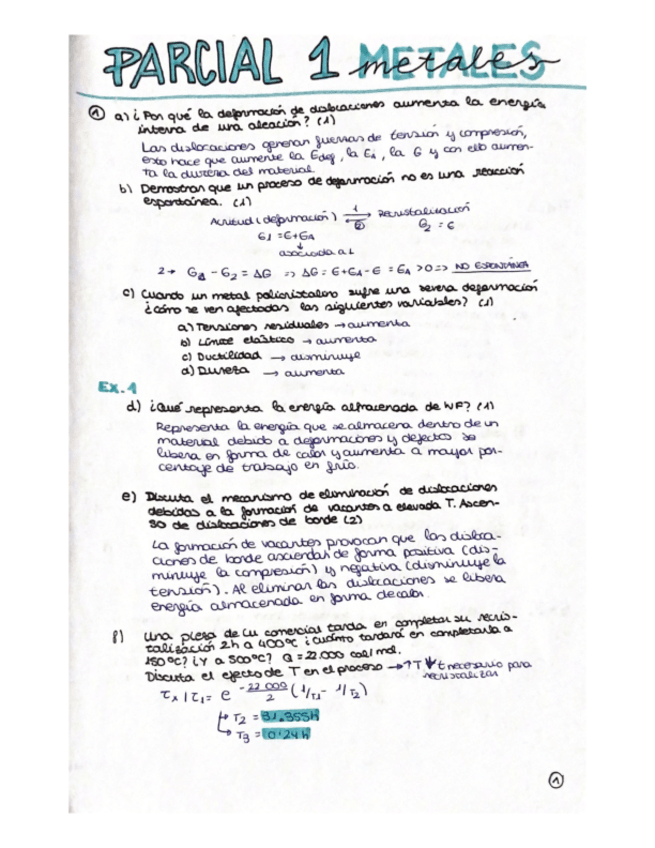 PARCIAL 1 METALES metales
① a) ¿Por qué la deformación de dislocaciones aumenta la energía
interna de una aleación? (1)
Las dislocaciones generan fuerzas de tensión y compresión,
esto hace que aumente la Edef, la Ei, la G y con ello aumen-
ta la dureza del material.
b) Demostrar que un proceso de deformación no es una reacción
espontánea. (1)
Acritud (deformación) 1 ⇄ 2 Recristalización
G1 = G+GA G2 = G
↓
asociada a L
2→ G1 - G2 = ΔG => ΔG = G+GA-G = GA >0 => NO ESPONTÁNEA
c) Cuando un metal policristalino sufre una severa deformación
¿cómo se ven afectadas las siguientes variables? (1)
a) Tensiones residuales → aumenta
b) Límite elástico → aumenta
c) Ductilidad → disminuye
d) Dureza → aumenta
EX.1
d) ¿Qué representa la energía almacenada de WF? (1)
Representa la energía que se almacena dentro de un
material debido a deformaciones y defectos se
libera en forma de calor y aumenta a mayor por-
centaje de trabajo en frío.
e) Discuta el mecanismo de eliminación de dislocaciones
debidas a la formación de vacantes a elevada T. Ascen-
so de dislocaciones de borde (2)
La formación de vacantes provocan que las disloca-
ciones de borde asciendan de forma positiva (dis-
minuye la compresión) y negativa (disminuye la
tensión). Al eliminar las dislocaciones se libera
energía almacenada en forma de calor.
f) Una pieza de Cu comercial tarda en completar su recris-
talización 2h a 400ºC ¿cuánto tardará en completarla a
150ºC? ¿Y a 500ºC? Q = 22.000 cal/mol.
Discuta el efecto de T en el proceso → ↑T ↓t necesario para
recristalizar
τx/τ1 = e -22.000/2 (1/T1 - 1/T2)
→ T2 = 31.355h
→ T3 = 0.24h
1